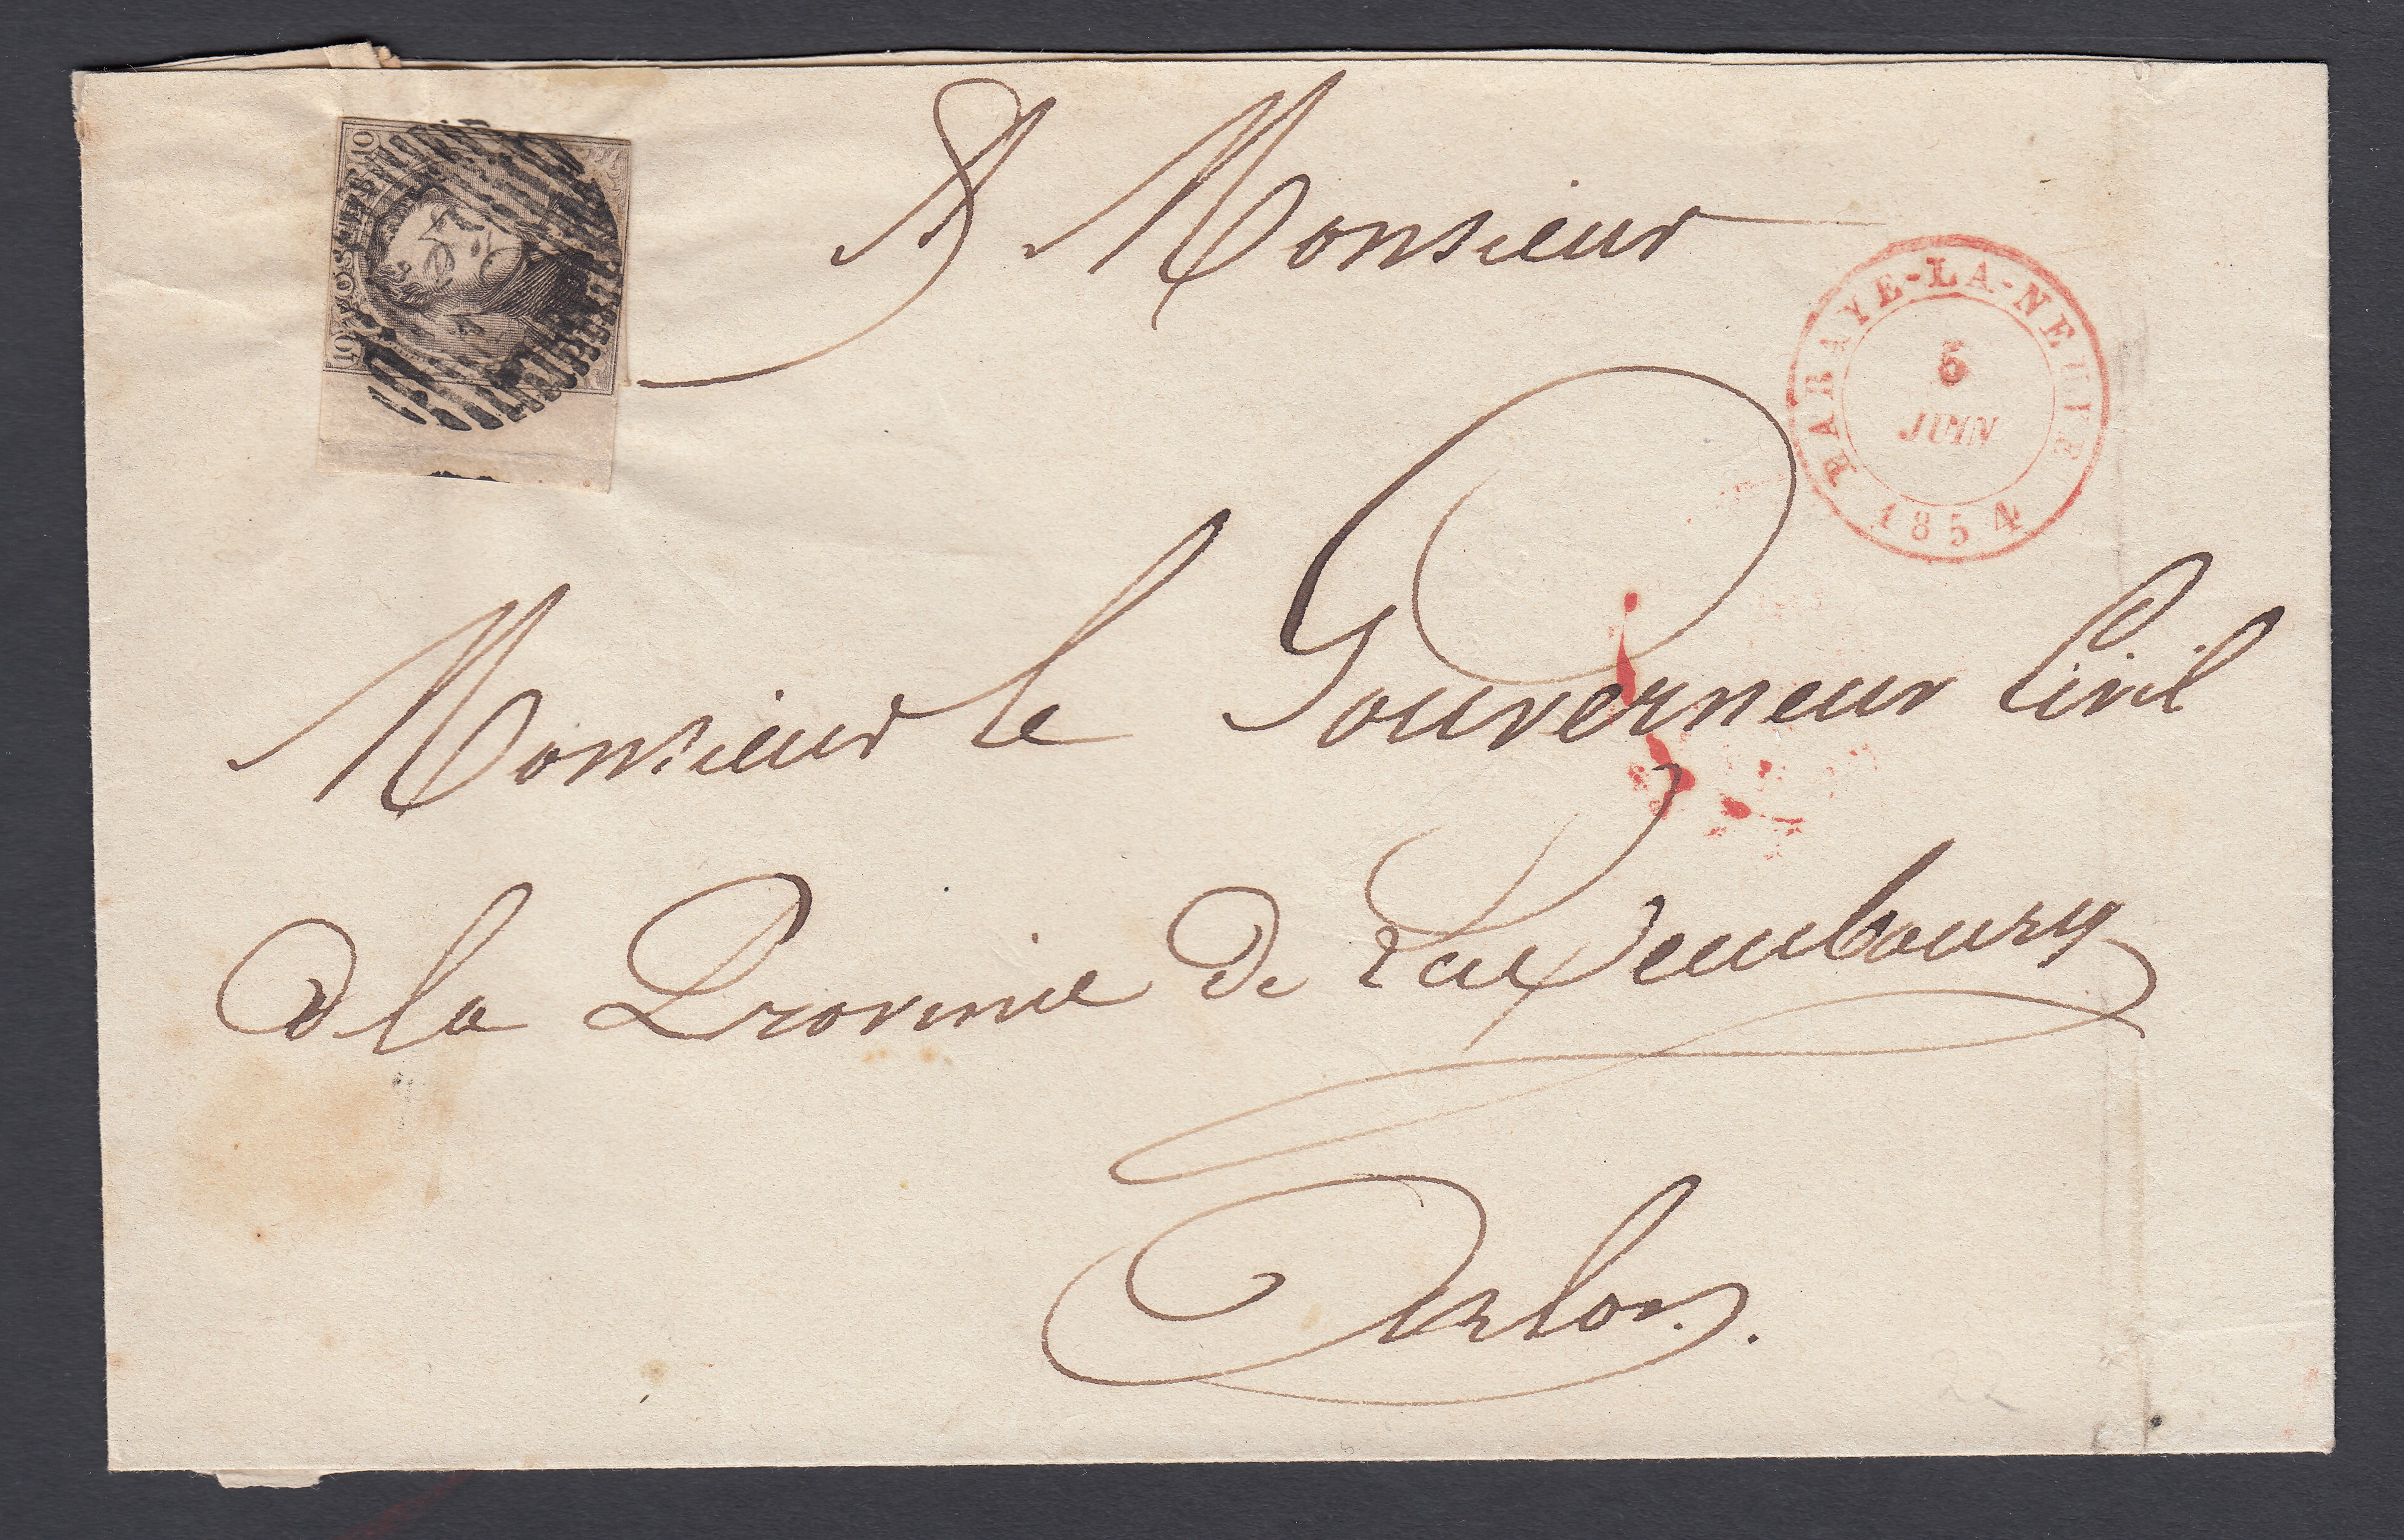 10 POSTES 10
A Monsieur
BARAYE-LA-NEUVE
5
JUIN
1854
Monsieur le Gouverneur Civil
d la Province de Luxembourg
Arlon.